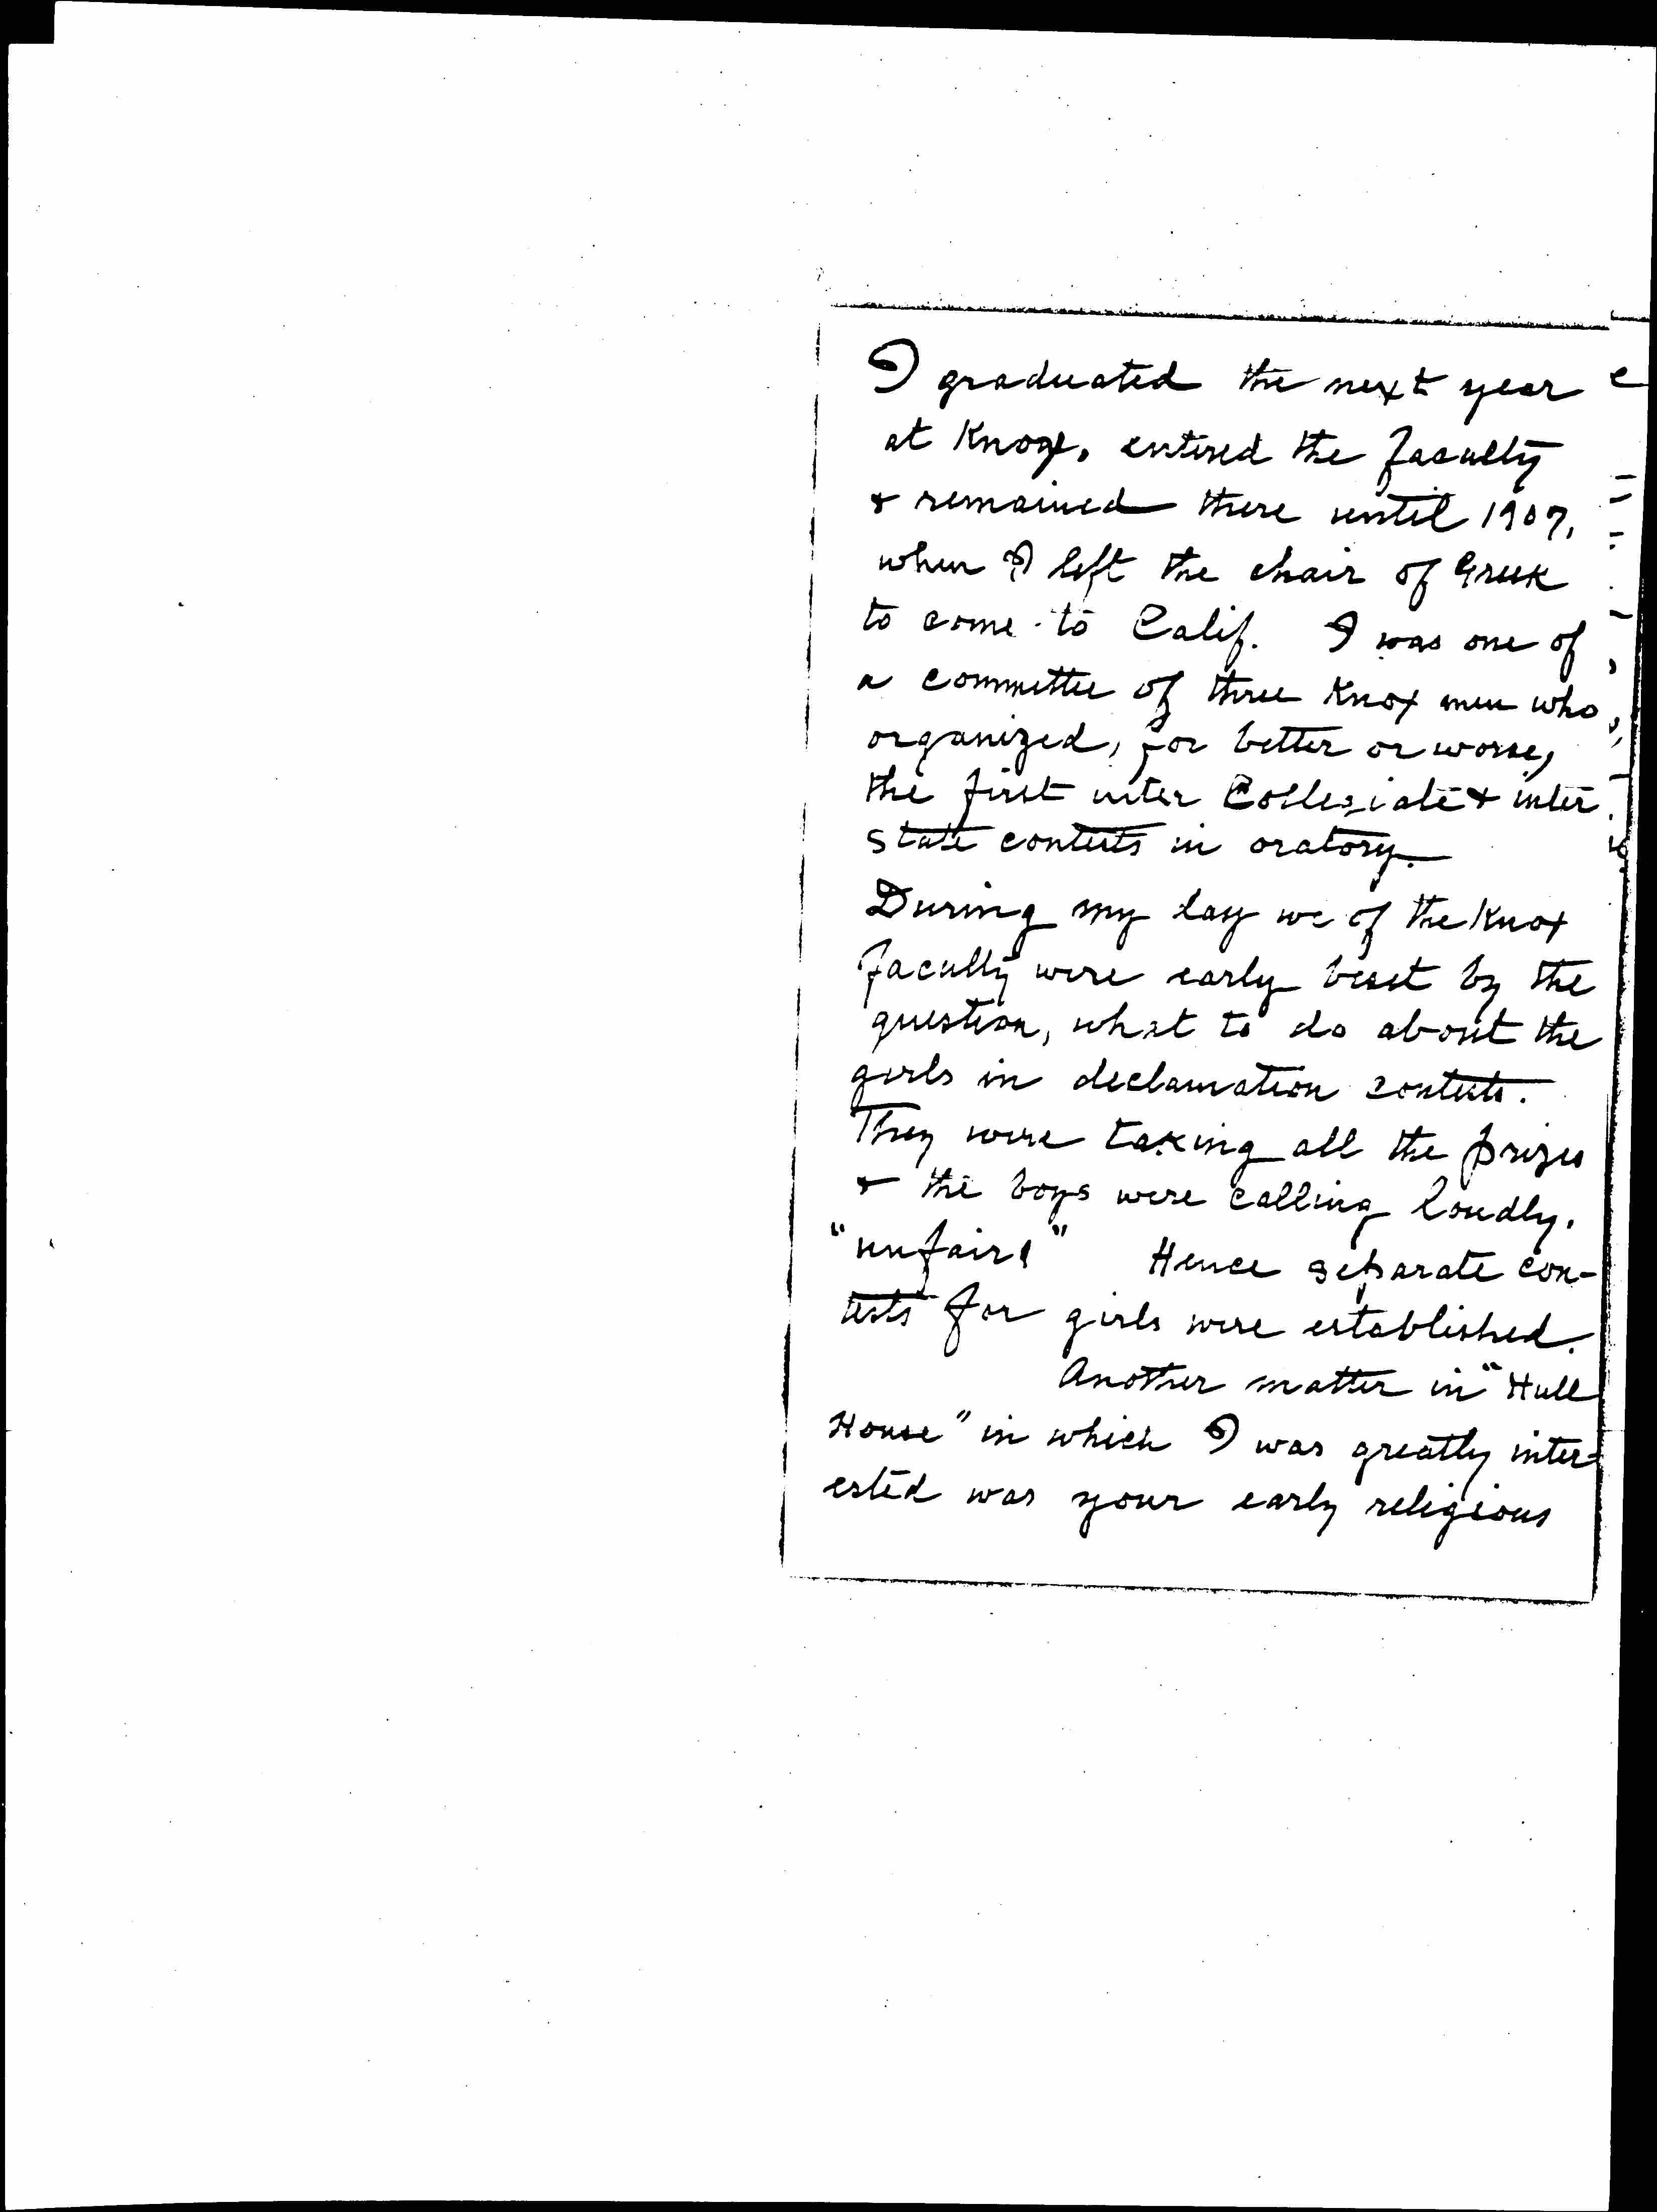 I graduated the next year
at Knox, entered the faculty
& remained there until 1907,
when I left the chair of Greek
to come to Calif. I was one of
a committee of three Knox men who
organized, for better or worse,
the first inter Collegiate & inter
state contests in oratory.
During my day we of the Knox
faculty were early beset by the
question, what to do about the
girls in declamation contests.
They were taking all the prizes
& the boys were calling loudly,
"unfair!" Hence separate con-
tests for girls were established.
Another matter in "Hull
House" in which I was greatly inter-
ested was your early religious